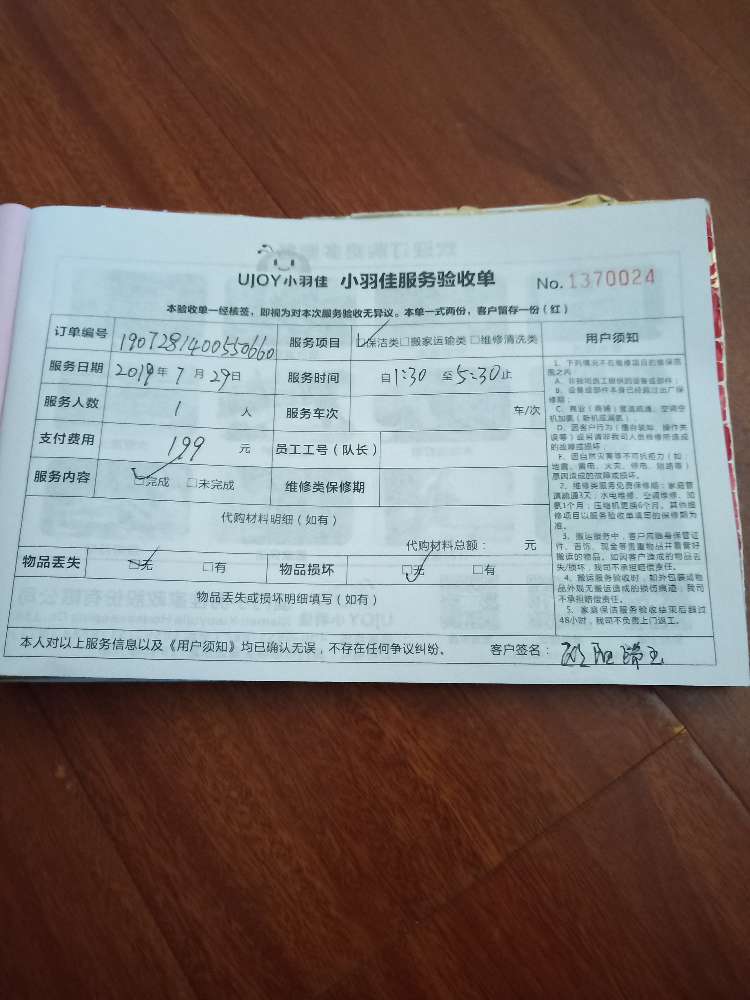 UJOY小羽佳 小羽佳服务验收单 No. 1370024
本验收单一经核签，即视为对本次服务验收无异议。本单一式两份，客户留存一份（红）
订单编号 190728140055066０ 服务项目 保洁类 □搬家运输类 □维修清洗类 用户须知
服务日期 2019年7月29日 服务时间 自1:30 至5:30止
服务人数 1 人 服务车次 车/次
支付费用 199 元 员工工号（队长）
服务内容 □完成 □未完成 维修类保修期
代购材料明细（如有）
代购材料总额： 元
物品丢失 □无 □有 物品损坏 □无 □有
物品丢失或损坏明细填写（如有）
本人对以上服务信息以及《用户须知》均已确认无误，不存在任何争议纠纷。 客户签名：欧阳瑞玉
1、下列情况不在维修项目的维保范围之内：
A、非我司施工提供的设备或部件；
B、设备或部件本身已经超过出厂保修期；
C、商业（商铺）管道疏通、空调空机加氨（新机或漏氨）；
D、因客户行为（擅自装卸、操作失误等）或另请非我司人员维修所造成的故障或损坏；
E、因自然灾害等不可抗拒力（如：地震、雷电、火灾、停电、短路等）原因造成的故障或损坏。
2、维修类服务免费保修期：家庭管道疏通3天；水电维修、空调维修、加氨1个月；压缩机更换6个月。其他维修项目以服务验收单填写的保修期为准。
3、搬运服务中，客户应随身保管证件、首饰、现金等贵重物品并看管好搬运的物品。如因客户造成的物品丢失/损坏，我司不承担赔偿责任。
4、搬运服务验收时，如外包装或物品外观无搬运造成的损伤痕迹，我司不承担赔偿责任。
5、家庭保洁服务验收结束后超过48小时，我司不负责上门返工。